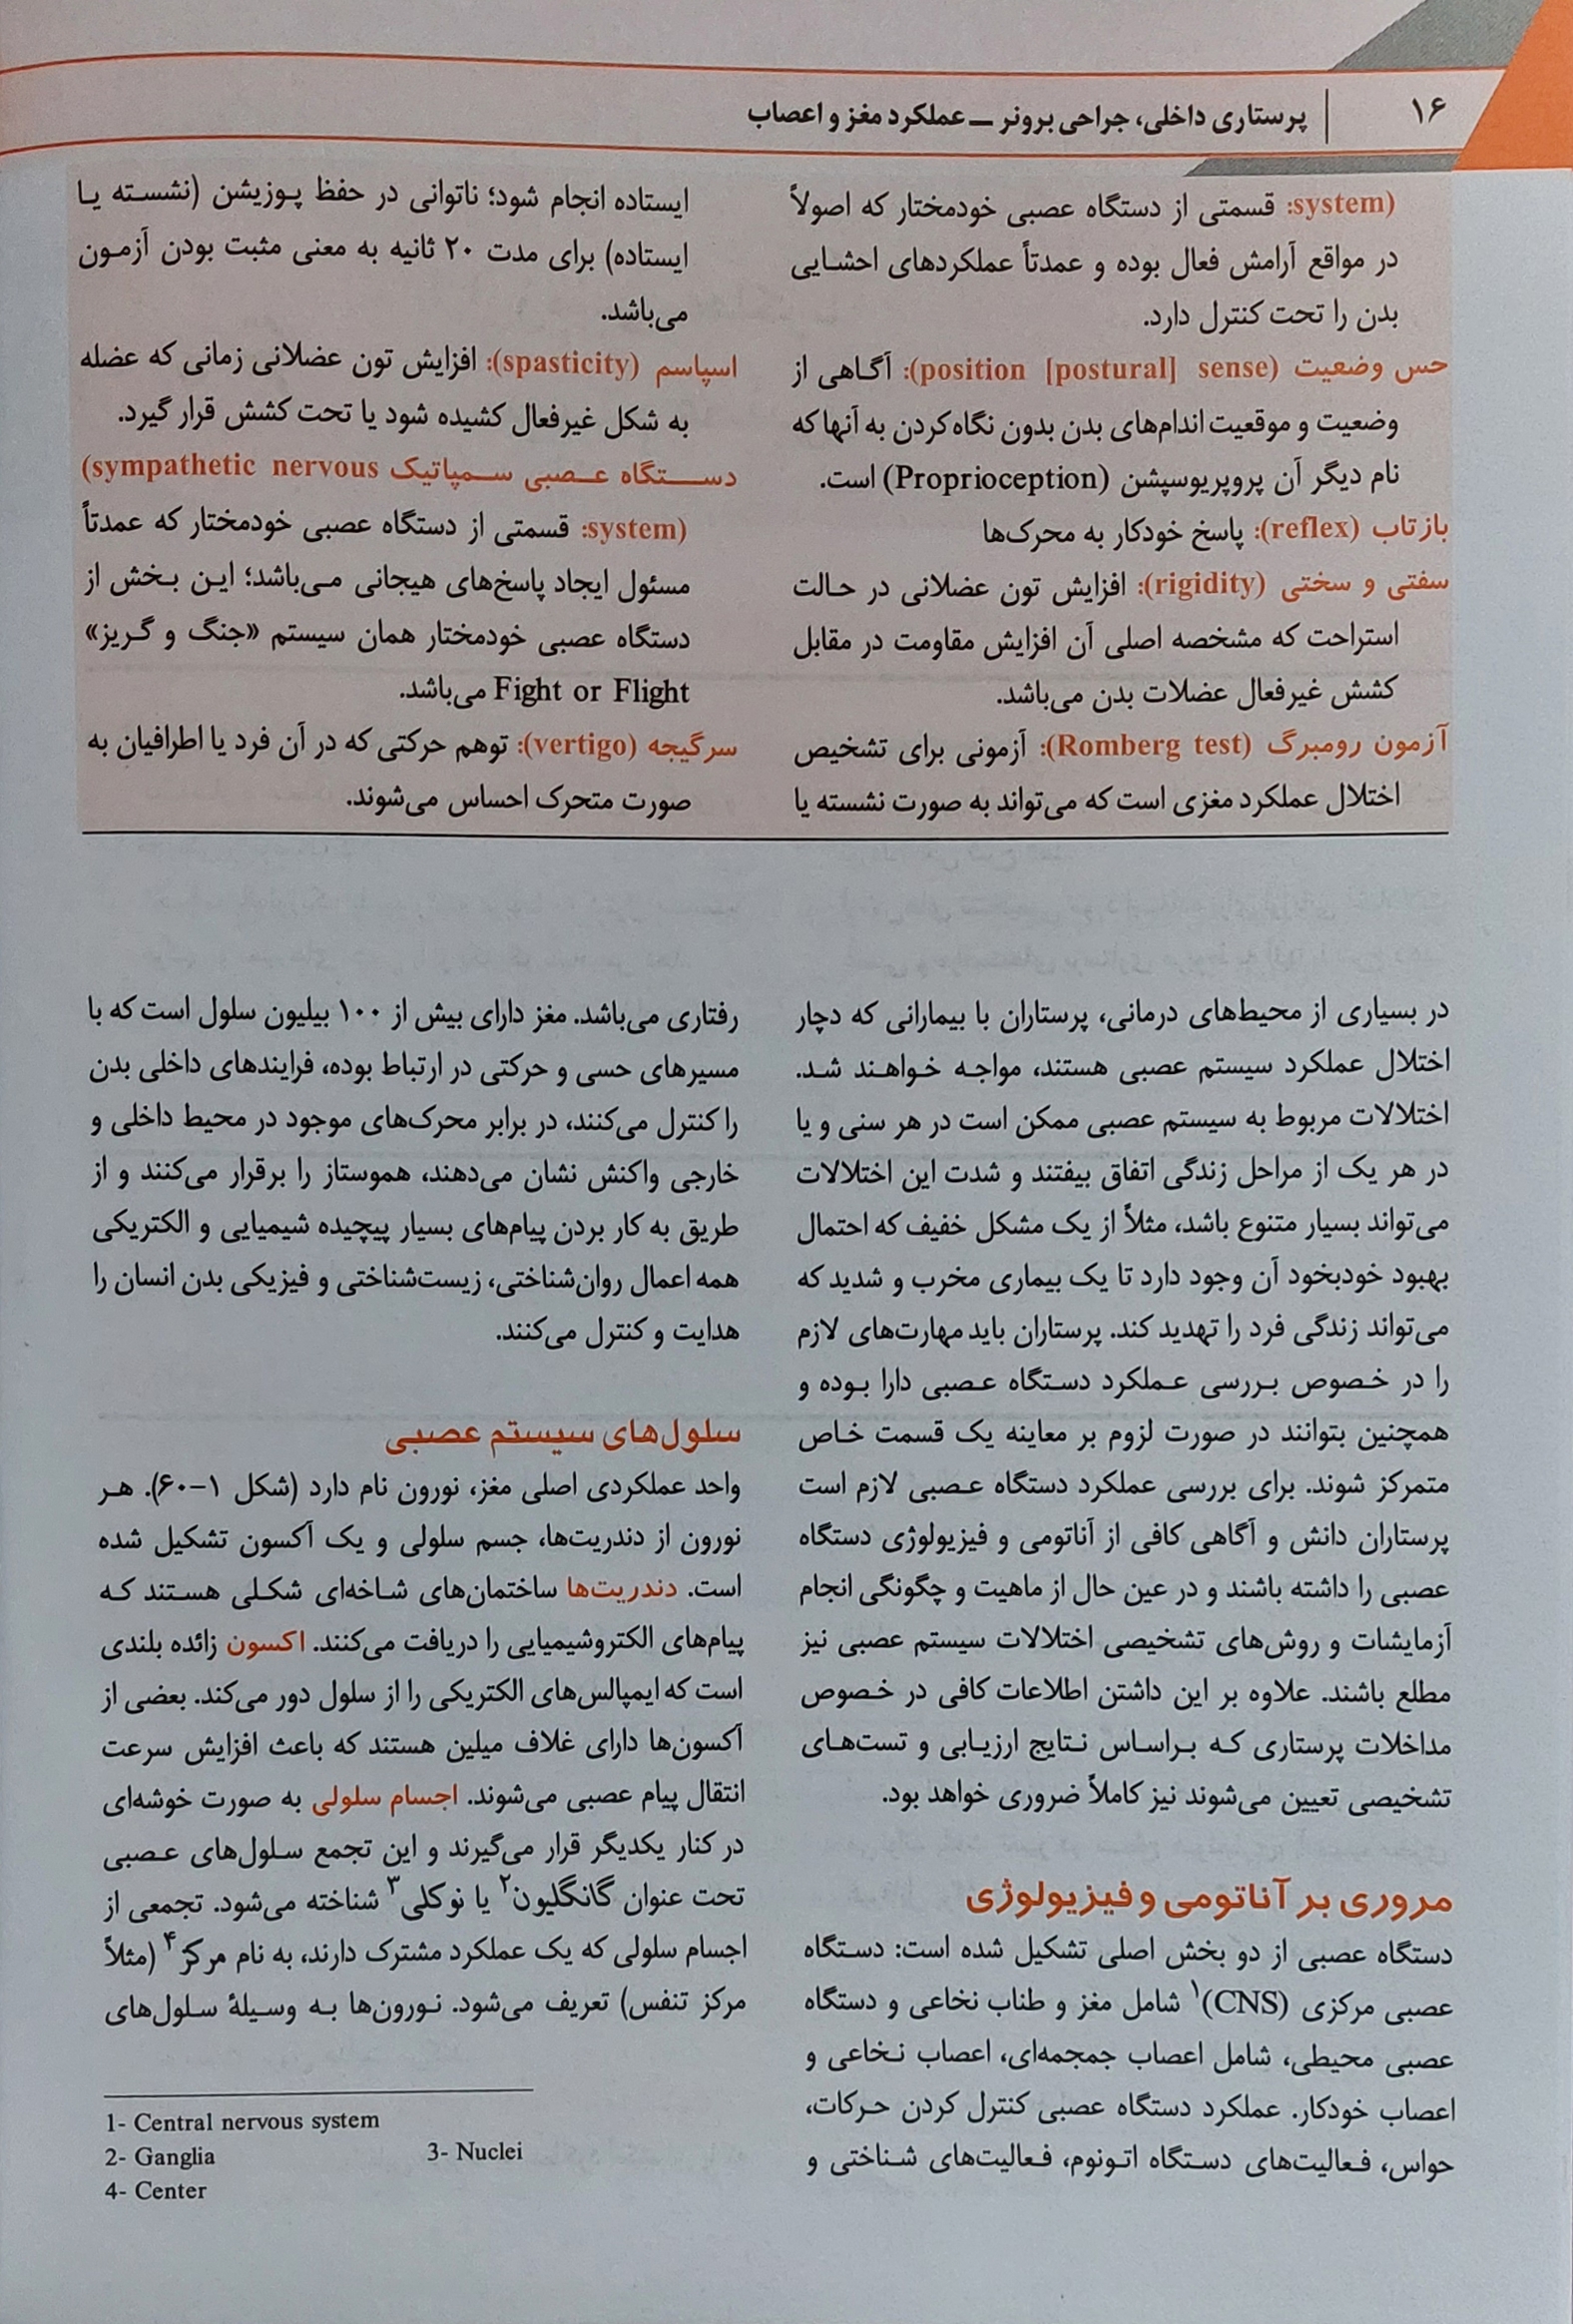 ۱۶
پرستاری داخلی، جراحی برونر ــ عملکرد مغز و اعصاب
system): قسمتی از دستگاه عصبی خودمختار که اصولاً
در مواقع آرامش فعال بوده و عمدتاً عملکردهای احشایی
بدن را تحت کنترل دارد.
حس وضعیت (position [postural] sense): آگاهی از
وضعیت و موقعیت اندام‌های بدن بدون نگاه کردن به آنها که
نام دیگر آن پروپریوسپشن (Proprioception) است.
بازتاب (reflex): پاسخ خودکار به محرک‌ها
سفتی و سختی (rigidity): افزایش تون عضلانی در حالت
استراحت که مشخصه اصلی آن افزایش مقاومت در مقابل
کشش غیرفعال عضلات بدن می‌باشد.
آزمون رومبرگ (Romberg test): آزمونی برای تشخیص
اختلال عملکرد مغزی است که می‌تواند به صورت نشسته یا
ایستاده انجام شود؛ ناتوانی در حفظ پوزیشن (نشسته یا
ایستاده) برای مدت ۲۰ ثانیه به معنی مثبت بودن آزمون
می‌باشد.
اسپاسم (spasticity): افزایش تون عضلانی زمانی که عضله
به شکل غیرفعال کشیده شود یا تحت کشش قرار گیرد.
دستگاه عصبی سمپاتیک (sympathetic nervous
system): قسمتی از دستگاه عصبی خودمختار که عمدتاً
مسئول ایجاد پاسخ‌های هیجانی می‌باشد؛ این بخش از
دستگاه عصبی خودمختار همان سیستم «جنگ و گریز»
Fight or Flight می‌باشد.
سرگیجه (vertigo): توهم حرکتی که در آن فرد یا اطرافیان به
صورت متحرک احساس می‌شوند.
در بسیاری از محیط‌های درمانی، پرستاران با بیمارانی که دچار
اختلال عملکرد سیستم عصبی هستند، مواجه خواهند شد.
اختلالات مربوط به سیستم عصبی ممکن است در هر سنی و یا
در هر یک از مراحل زندگی اتفاق بیفتند و شدت این اختلالات
می‌تواند بسیار متنوع باشد، مثلاً از یک مشکل خفیف که احتمال
بهبود خودبخود آن وجود دارد تا یک بیماری مخرب و شدید که
می‌تواند زندگی فرد را تهدید کند. پرستاران باید مهارت‌های لازم
را در خصوص بررسی عملکرد دستگاه عصبی دارا بوده و
همچنین بتوانند در صورت لزوم بر معاینه یک قسمت خاص
متمرکز شوند. برای بررسی عملکرد دستگاه عصبی لازم است
پرستاران دانش و آگاهی کافی از آناتومی و فیزیولوژی دستگاه
عصبی را داشته باشند و در عین حال از ماهیت و چگونگی انجام
آزمایشات و روش‌های تشخیصی اختلالات سیستم عصبی نیز
مطلع باشند. علاوه بر این داشتن اطلاعات کافی در خصوص
مداخلات پرستاری که براساس نتایج ارزیابی و تست‌های
تشخیصی تعیین می‌شوند نیز کاملاً ضروری خواهد بود.
مروری بر آناتومی و فیزیولوژی
دستگاه عصبی از دو بخش اصلی تشکیل شده است: دستگاه
عصبی مرکزی (CNS)۱ شامل مغز و طناب نخاعی و دستگاه
عصبی محیطی، شامل اعصاب جمجمه‌ای، اعصاب نخاعی و
اعصاب خودکار. عملکرد دستگاه عصبی کنترل کردن حرکات،
حواس، فعالیت‌های دستگاه اتونوم، فعالیت‌های شناختی و
رفتاری می‌باشد. مغز دارای بیش از ۱۰۰ بیلیون سلول است که با
مسیرهای حسی و حرکتی در ارتباط بوده، فرایندهای داخلی بدن
را کنترل می‌کنند، در برابر محرک‌های موجود در محیط داخلی و
خارجی واکنش نشان می‌دهند، هموستاز را برقرار می‌کنند و از
طریق به کار بردن پیام‌های بسیار پیچیده شیمیایی و الکتریکی
همه اعمال روان‌شناختی، زیست‌شناختی و فیزیکی بدن انسان را
هدایت و کنترل می‌کنند.
سلول‌های سیستم عصبی
واحد عملکردی اصلی مغز، نورون نام دارد (شکل ۱-۶۰). هر
نورون از دندریت‌ها، جسم سلولی و یک آکسون تشکیل شده
است. دندریت‌ها ساختمان‌های شاخه‌ای شکلی هستند که
پیام‌های الکتروشیمیایی را دریافت می‌کنند. اکسون زائده بلندی
است که ایمپالس‌های الکتریکی را از سلول دور می‌کند. بعضی از
آکسون‌ها دارای غلاف میلین هستند که باعث افزایش سرعت
انتقال پیام عصبی می‌شوند. اجسام سلولی به صورت خوشه‌ای
در کنار یکدیگر قرار می‌گیرند و این تجمع سلول‌های عصبی
تحت عنوان گانگلیون۲ یا نوکلی۳ شناخته می‌شود. تجمعی از
اجسام سلولی که یک عملکرد مشترک دارند، به نام مرکز۴ (مثلاً
مرکز تنفس) تعریف می‌شود. نورون‌ها به وسیلهٔ سلول‌های
1- Central nervous system
2- Ganglia 3- Nuclei
4- Center